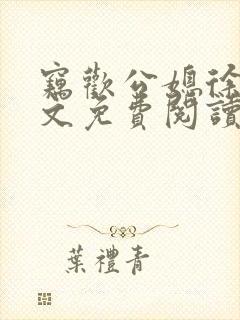 竊歡公媳徐
文免費閱讀
葉禮青